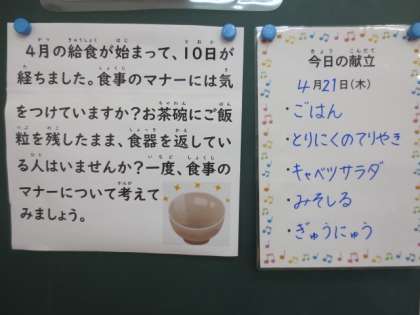 4月の給食が始まって、10日が
経ちました。食事のマナーには気
をつけていますか?お茶碗にご飯
粒を残したまま、食器を返してい
る人はいませんか?一度、食事の
マナーについて考えて
みましょう。
今日の献立
4月21日(木)
・ごはん
・とりにくのてりやき
・キャベツサラダ
・みそしる
・ぎゅうにゅう